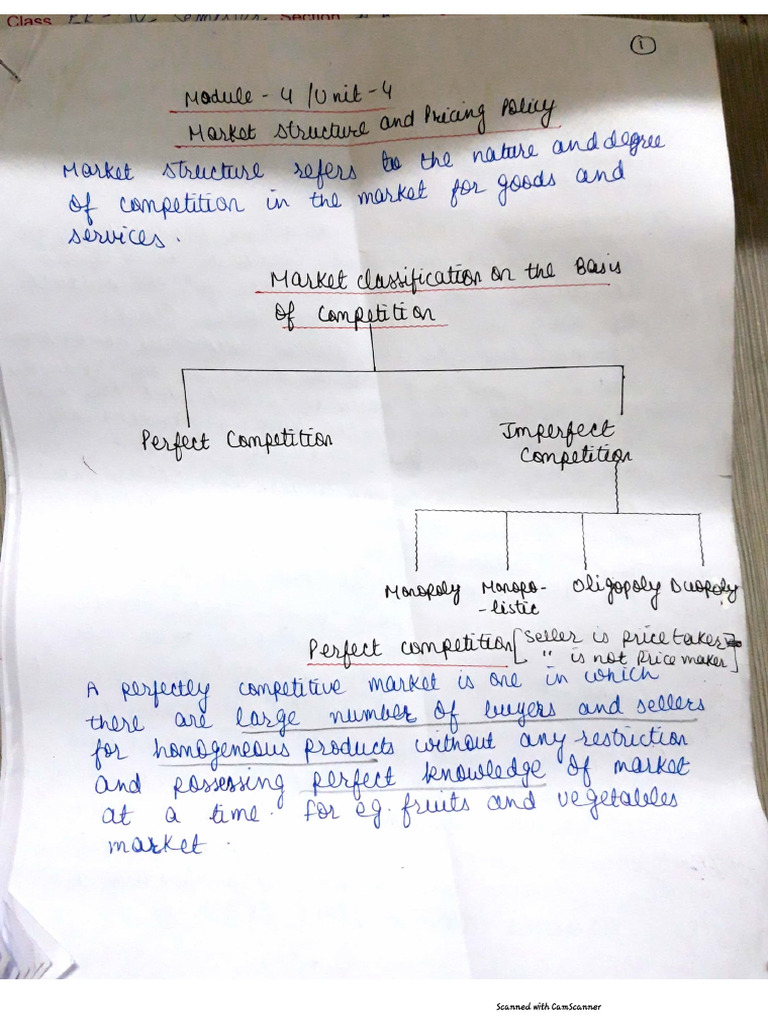 Class
Semester, Section
1
Module - 4 / Unit - 4
Market Structure and Pricing Policy
Market Structure refers to the nature and degree
of competition in the market for goods and
services.
Market classification on the Basis
of competition
Perfect Competition
Imperfect
Competition
Monopoly Monopo- Oligopoly Duopoly
-listic
Perfect competition [seller is price taker
" is not Price maker]
A perfectly competitive market is one in which
there are large number of buyers and sellers
for homogeneous products without any restriction
and possessing perfect knowledge of market
at a time. For eg. fruits and vegetables
market.
Scanned with CamScanner